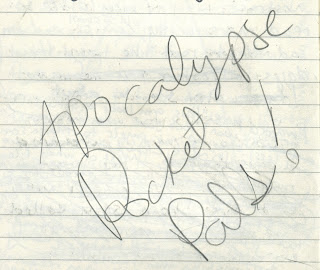 Apocalypse
Pocket
Pals!